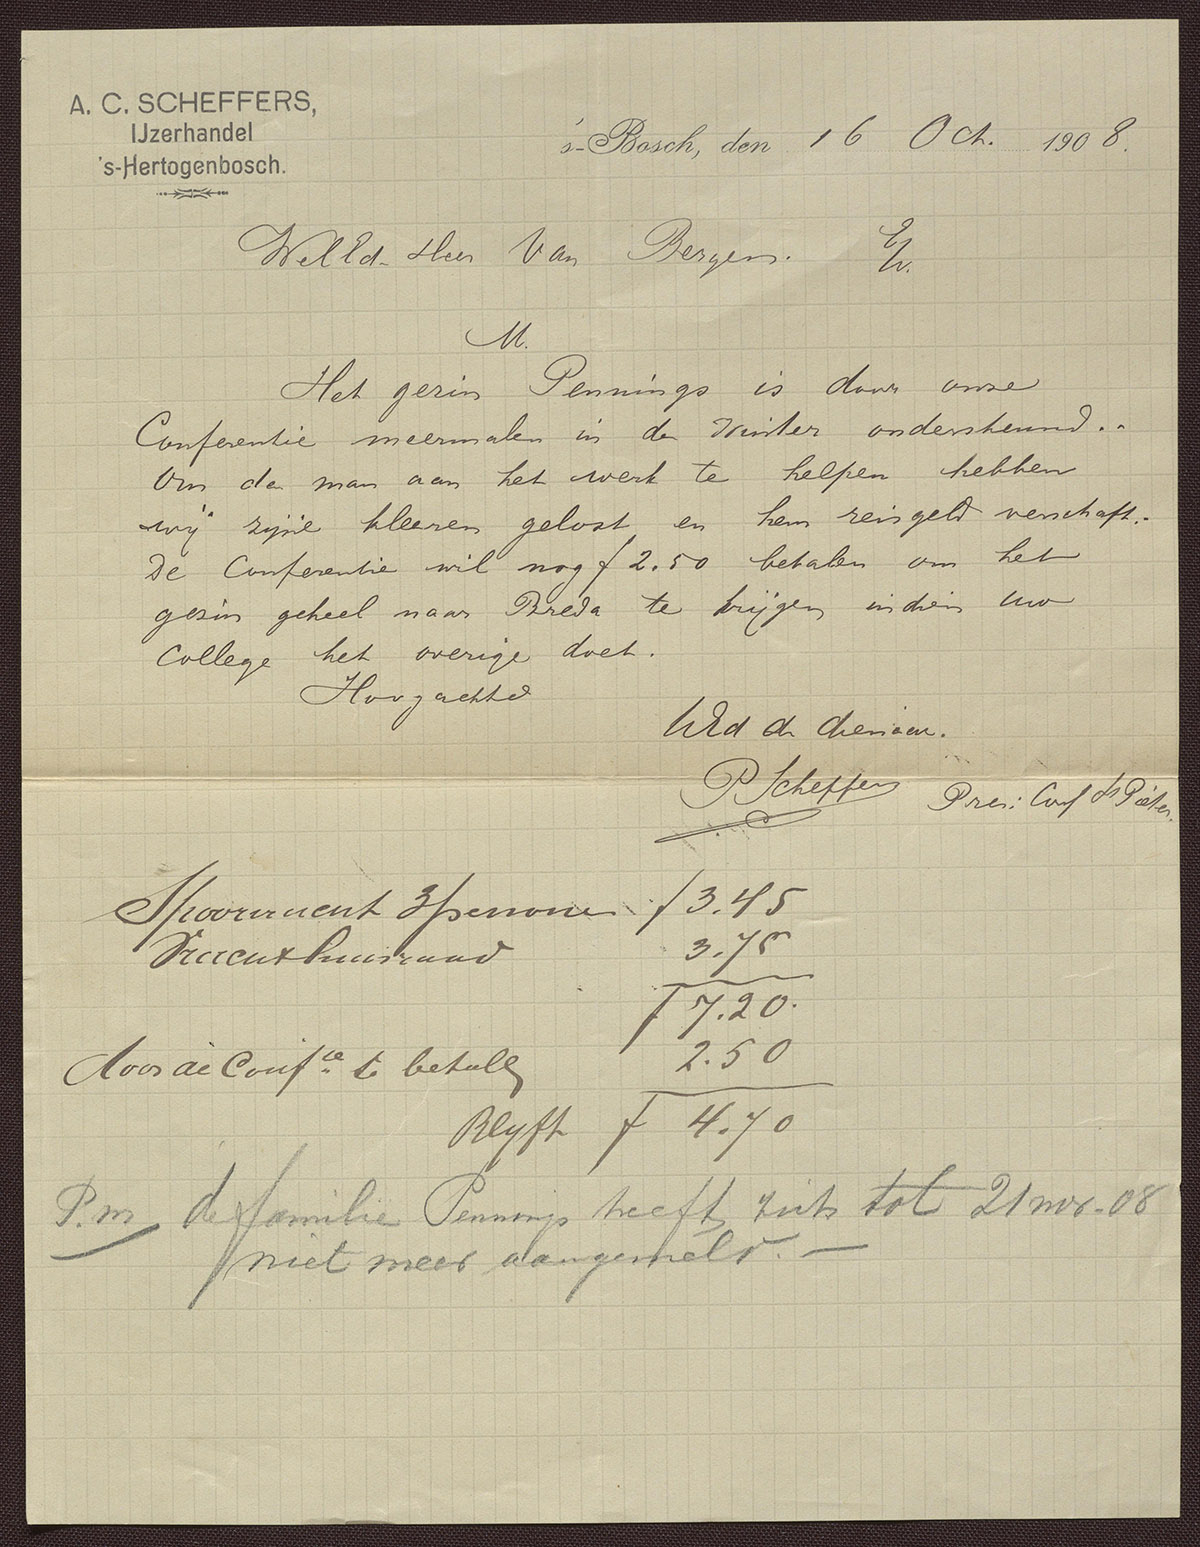 A. C. SCHEFFERS,
IJzerhandel
's-Hertogenbosch.
's-Bosch, den 16 Oct. 1908.
WelEd. Heer Van Bergen. E/V.
M.
Het gezin Pennings is door onze
Conferentie meermalen in de Winter ondersteund..
Om de man aan het werk te helpen hebben
wij zijne kleeren gelost en hem reisgeld verschaft.-
De Conferentie wil nog f 2.50 betalen om het
gezin geheel naar Breda te krijgen indien uw
College het overige doet.
Hoogachtd
UEd dr dienaar.
P Scheffers Pres: Conf St Pieter.
Spoorvracht 3 personen f 3.45
Vracht huisraad 3.75
f 7.20.
door de Confce te betalen 2.50
Blyft f 4.70
P.m. de familie Pennings heeft zich tot 21 nov.-08
niet meer aangemeld. —